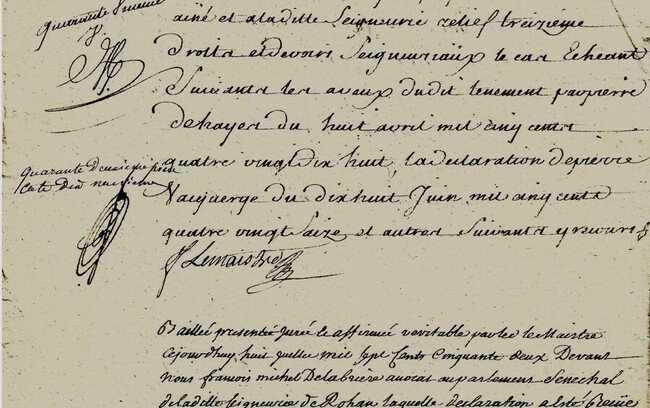 Quarante
ainé et a la ditte Seigneurie relief treizieme
droits et devoirs Seigneuriaux le cas Echeant
Suivants les aveux dudit tenement par pierre
dehayes du huit avril mil cinq cents
quatre vingt dix huit, la declaration de pierre
Vacquerge du dix huit Juin mil cinq cents
quatre vingt Saize et autres Suivants
quarante deuxieme piece
Cote dix neufieme
Lemaistre
Baillée presentée jurée et affirmée veritable par led. le Maistre
Cejourdhuy huit juillet mil sept Cents Cinquante deux Devant
nous françois michel Delabriere avocat au parlement Senechal
de laditte Seigneurie de Rohan laquelle declaration a esté